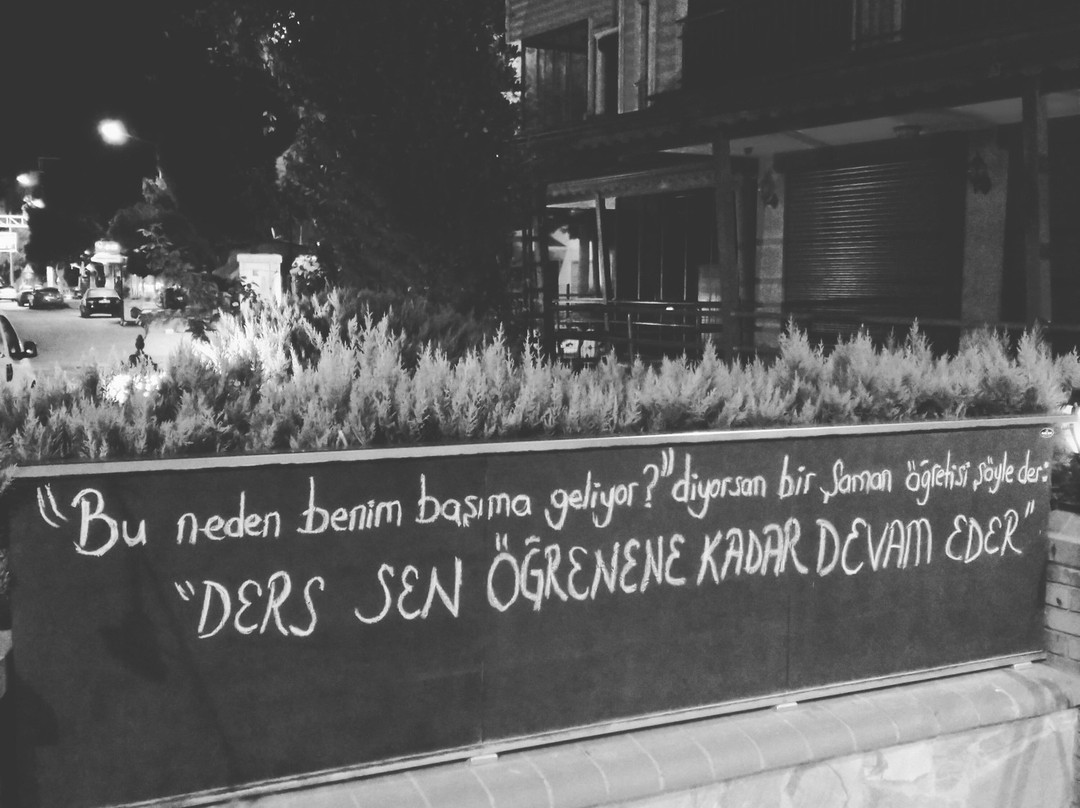 "Bu neden benim başıma geliyor?" diyorsan bir Şaman öğretisi şöyle der:
"DERS SEN ÖĞRENENE KADAR DEVAM EDER"